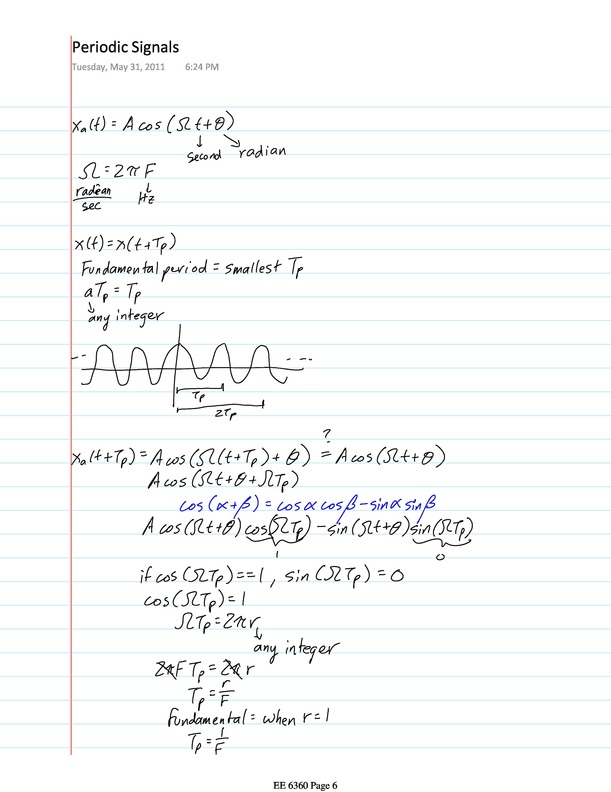 Periodic Signals
Tuesday, May 31, 2011 6:24 PM
xₐ(t) = A cos (Ωt+θ)
second radian
Ω = 2π F
radian/sec Hz
x(t)=x(t+Tₚ)
Fundamental period = smallest Tₚ
aTₚ = Tₚ
any integer
-- - --
Tₚ
2Tₚ
?
xₐ(t+Tₚ) = A cos(Ω(t+Tₚ) + θ) = A cos(Ωt+θ)
A cos(Ωt+θ+ΩTₚ)
cos(α+β) = cosα cosβ - sinα sinβ
A cos(Ωt+θ) cos(ΩTₚ) - sin(Ωt+θ) sin(ΩTₚ)
1 0
if cos(ΩTₚ)==1, sin(ΩTₚ)=0
cos(ΩTₚ)=1
ΩTₚ=2πr
any integer
2πF Tₚ = 2π r
Tₚ = r/F
fundamental = when r=1
Tₚ = 1/F
EE 6360 Page 6